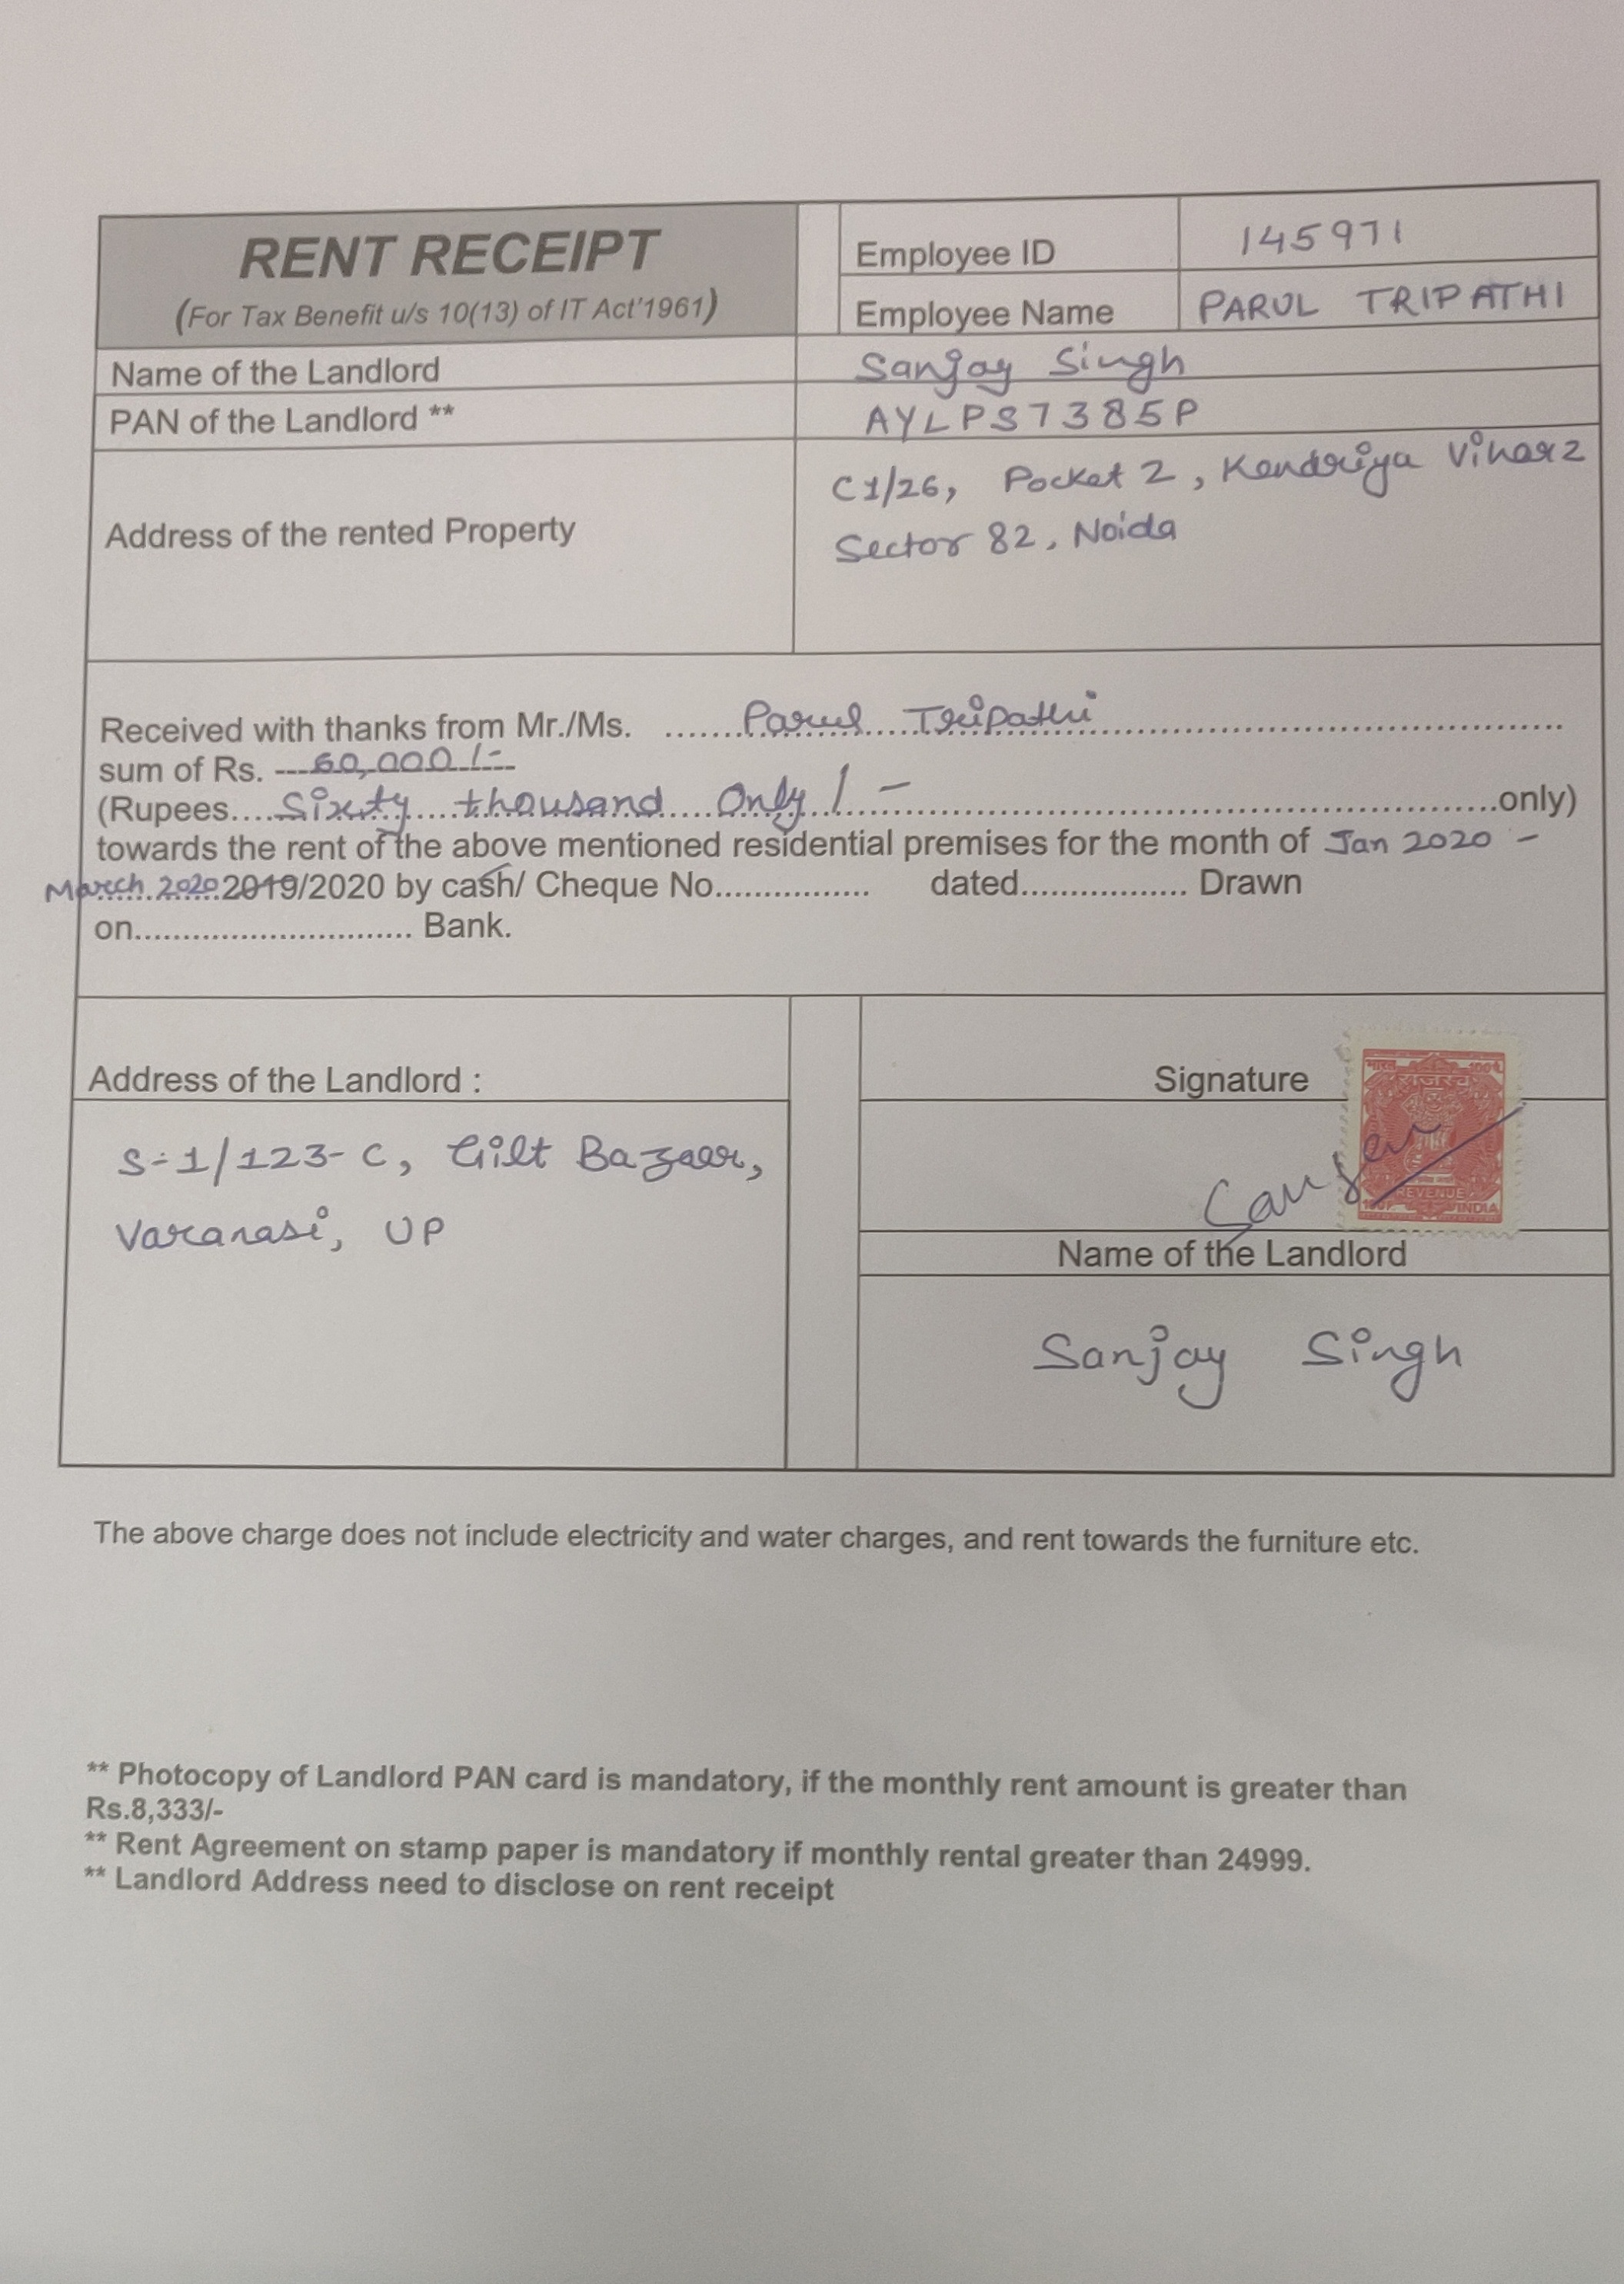 RENT RECEIPT
(For Tax Benefit u/s 10(13) of IT Act'1961)
Employee ID 145971
Employee Name PARUL TRIPATHI
Name of the Landlord Sanjay Singh
PAN of the Landlord ** AYLPS7385P
Address of the rented Property C1/26, Pocket 2, Kendriya Vihar 2
Sector 82, Noida
Received with thanks from Mr./Ms. .......Parul Tripathi.......
sum of Rs. ---60,000/---
(Rupees....Sixty thousand Only/-.......only)
towards the rent of the above mentioned residential premises for the month of Jan 2020 -
March 2020 2019/2020 by cash/ Cheque No................ dated................. Drawn
on............................. Bank.
Address of the Landlord :
S-1/123-C, Gilt Bazaar,
Varanasi, UP
Signature
भारत
राजस्व
REVENUE
INDIA
Name of the Landlord
Sanjay Singh
The above charge does not include electricity and water charges, and rent towards the furniture etc.
** Photocopy of Landlord PAN card is mandatory, if the monthly rent amount is greater than
Rs.8,333/-
** Rent Agreement on stamp paper is mandatory if monthly rental greater than 24999.
** Landlord Address need to disclose on rent receipt